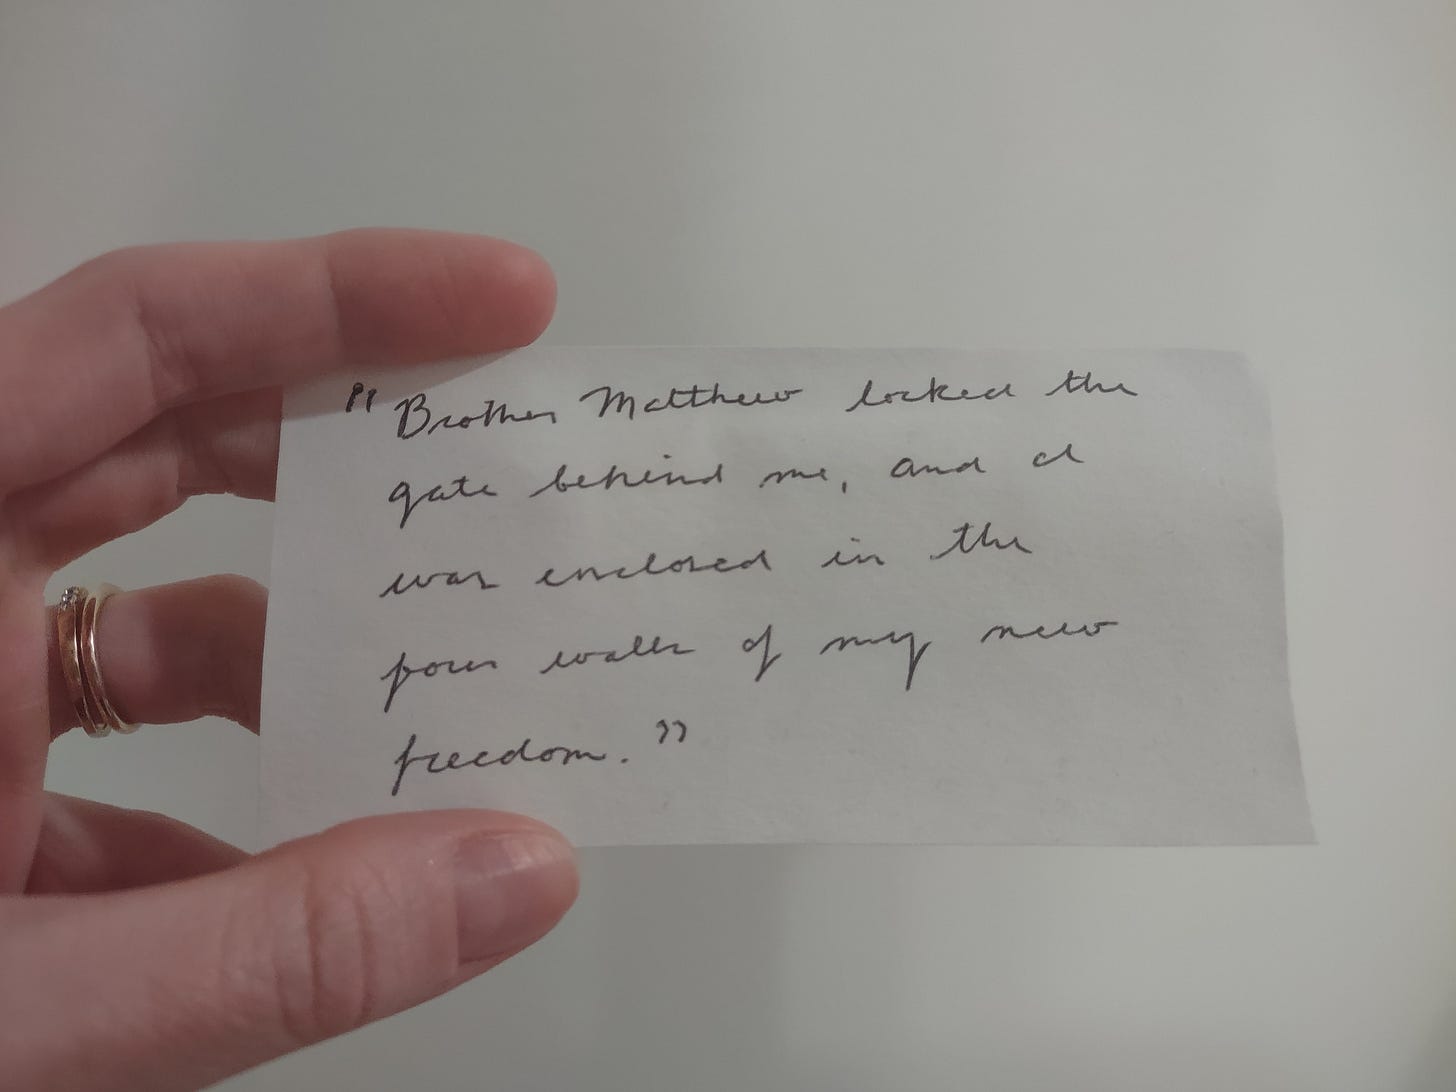 "Brother Matthew locked the
gate behind me, and I
was enclosed in the
four walls of my new
freedom."